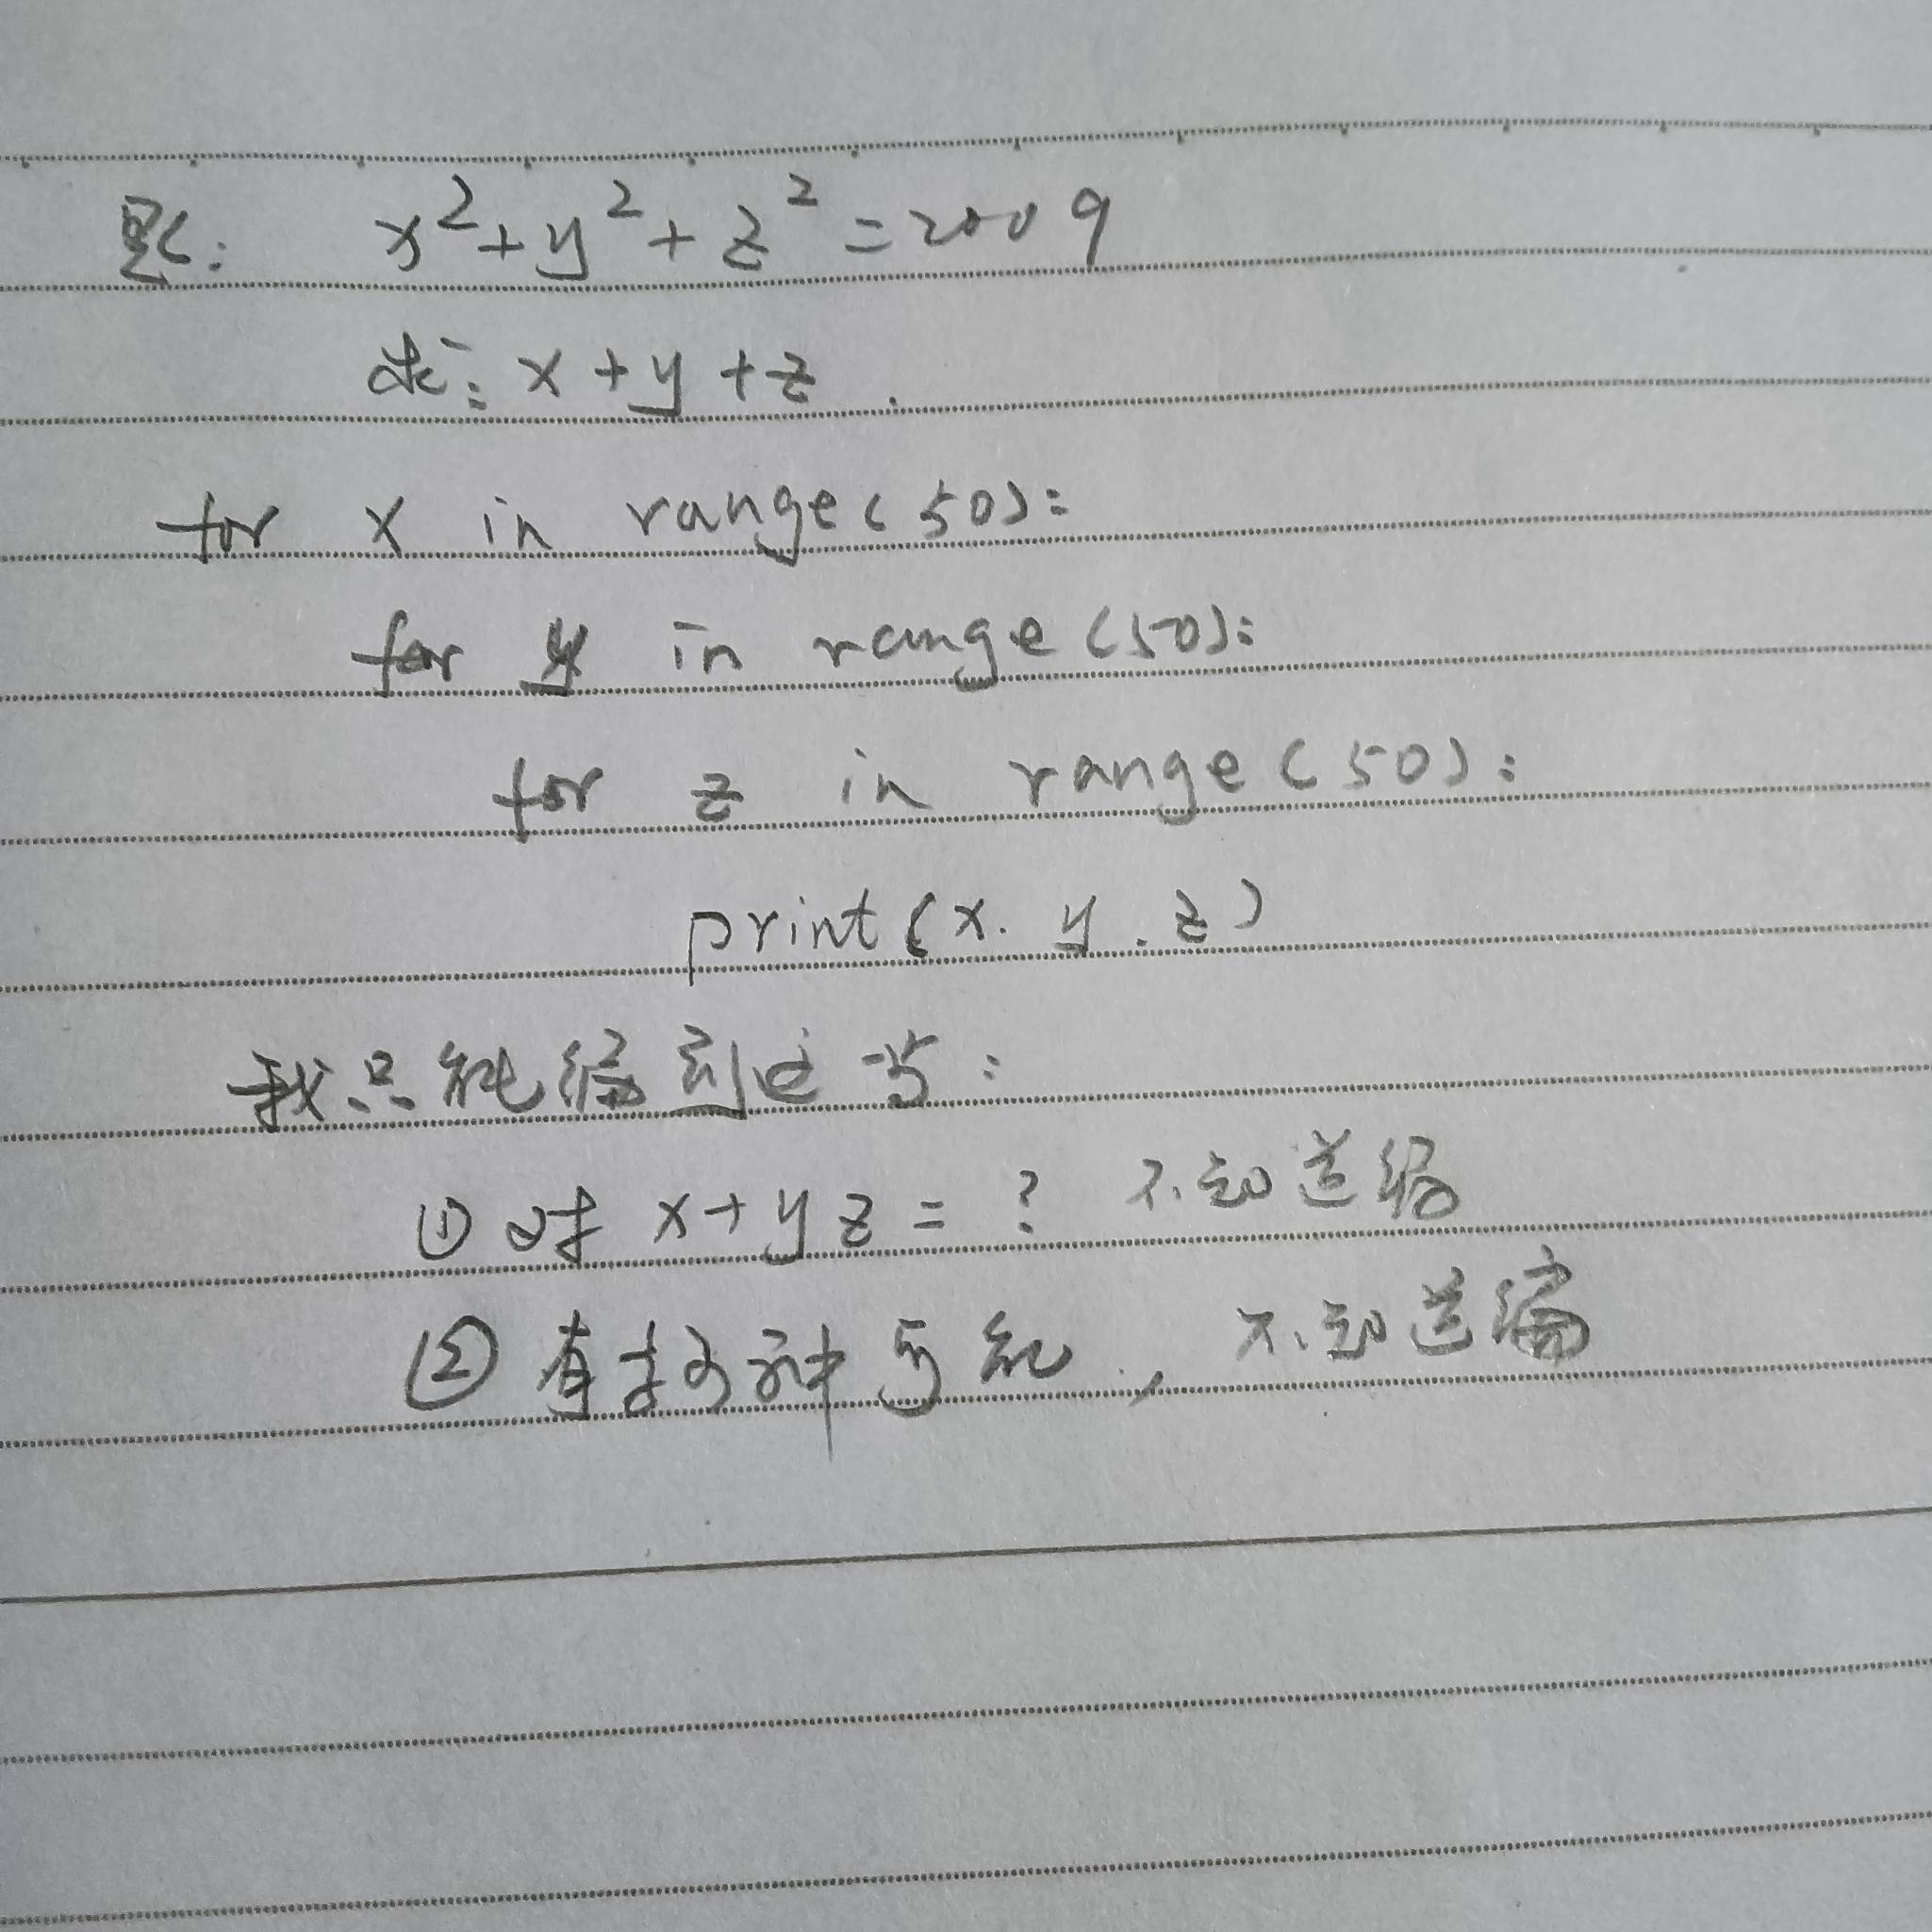 题: x²+y²+z²=2009
求: x+y+z.
for x in range(50):
for y in range(50):
for z in range(50):
print(x. y. z)
我只能编到这步:
① 对 x+yz=? 不知道编
② 有多少种可能, 不知道编